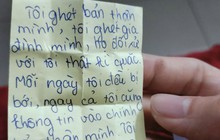 Tôi ghét bản thân
mình, tôi ghét gia
đình mình, họ đối xử
với tôi thật kì quặc.
Mỗi ngày tôi đều bị
bơi, ngay cả tôi cũng
không tin vào chính
bản thân mình. Tôi